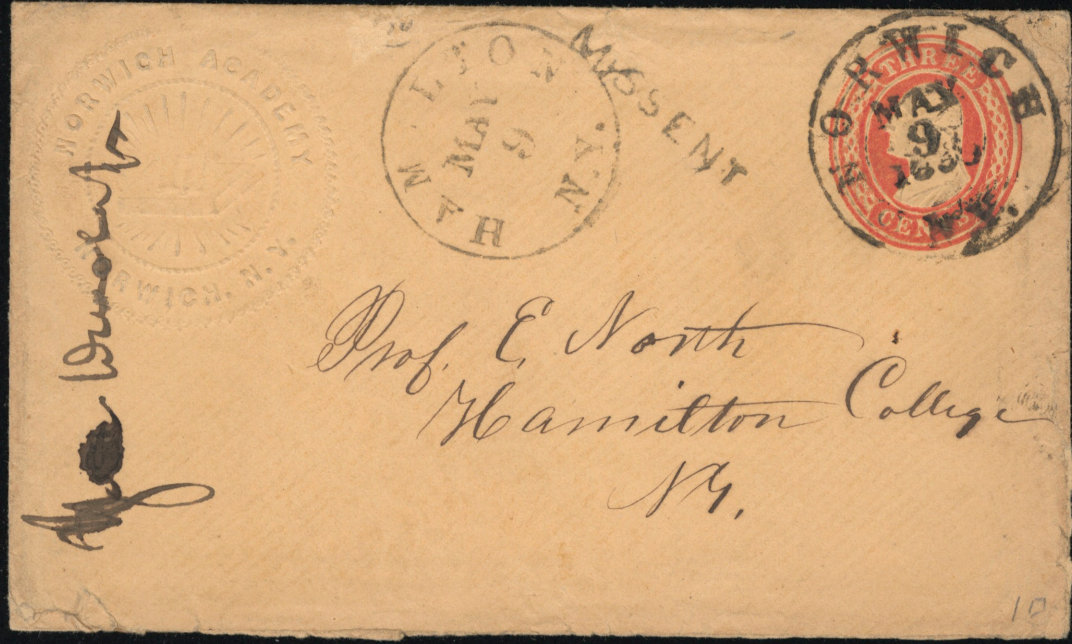 NORWICH ACADEMY
NORWICH, N.Y.
HAMILTON
MAY
9
N.Y.
MISSENT
NORWICH
MAY
9
N.Y.
THREE
CENTS
Prof. E. North
Hamilton College
NY.
10